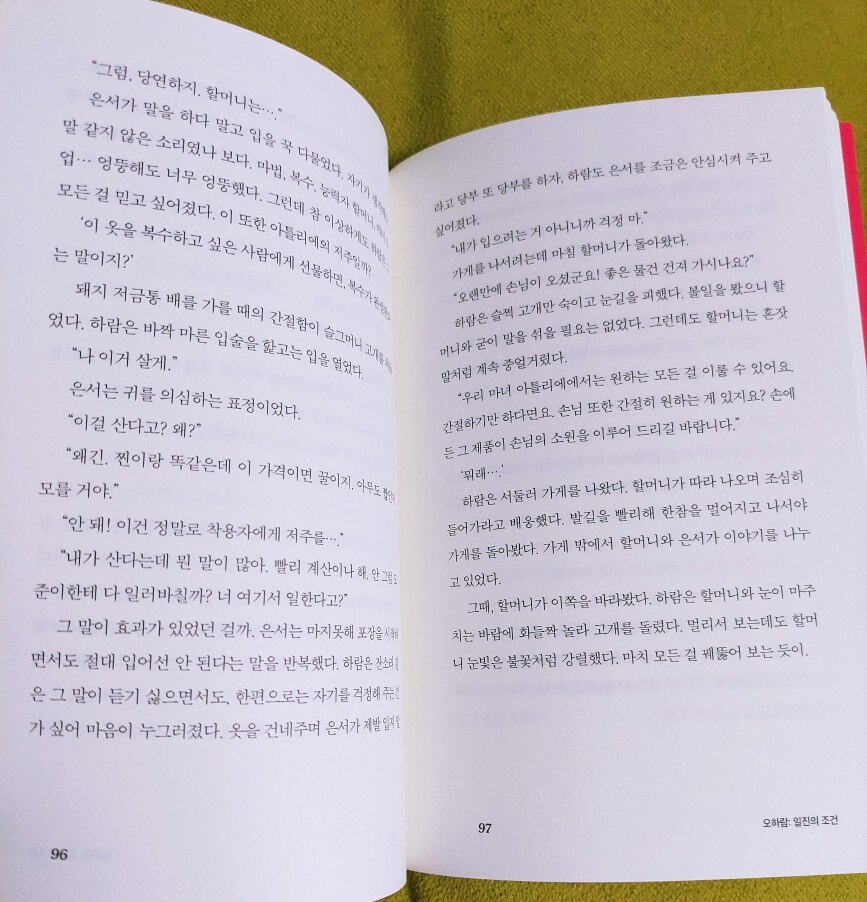 “그럼, 당연하지. 할머니는….”
은서가 말을 하다 말고 입을 꾹 다물었다. 자기가
말 같지 않은 소리였나 보다. 마법, 복수, 능력자 할머니,
업… 엉뚱해도 너무 엉뚱했다. 그런데 참 이상하게도
모든 걸 믿고 싶어졌다. 이 또한 아틀리에의 저주일까?
‘이 옷을 복수하고 싶은 사람에게 선물하면, 복수가
는 말이지?’
돼지 저금통 배를 가를 때의 간절함이 슬그머니 고개를
었다. 하람은 바짝 마른 입술을 핥고는 입을 열었다.
“나 이거 살게.”
은서는 귀를 의심하는 표정이었다.
“이걸 산다고? 왜?”
“왜긴. 찐이랑 똑같은데 이 가격이면 꿀이지. 아무도
모를 거야.”
“안 돼! 이건 정말로 착용자에게 저주를….”
“내가 산다는데 뭔 말이 많아. 빨리 계산이나 해. 안 그럼
준이한테 다 일러바칠까? 너 여기서 일한다고?”
그 말이 효과가 있었던 걸까. 은서는 마지못해 포장을
면서도 절대 입어선 안 된다는 말을 반복했다. 하람은 잔소리
은 그 말이 듣기 싫으면서도, 한편으로는 자기를 걱정해 주는
가 싶어 마음이 누그러졌다. 옷을 건네주며 은서가 제발 입지
96
라고 당부 또 당부를 하자, 하람도 은서를 조금은 안심시켜 주고
싶어졌다.
“내가 입으려는 거 아니니까 걱정 마.”
가게를 나서려는데 마침 할머니가 돌아왔다.
“오랜만에 손님이 오셨군요! 좋은 물건 건져 가시나요?”
하람은 슬쩍 고개만 숙이고 눈길을 피했다. 볼일을 봤으니 할
머니와 굳이 말을 섞을 필요는 없었다. 그런데도 할머니는 혼잣
말처럼 계속 중얼거렸다.
“우리 마녀 아틀리에에서는 원하는 모든 걸 이룰 수 있어요.
간절하기만 하다면요. 손님 또한 간절히 원하는 게 있지요? 손에
든 그 제품이 손님의 소원을 이루어 드리길 바랍니다.”
‘뭐래….’
하람은 서둘러 가게를 나왔다. 할머니가 따라 나오며 조심히
들어가라고 배웅했다. 발길을 빨리해 한참을 멀어지고 나서야
가게를 돌아봤다. 가게 밖에서 할머니와 은서가 이야기를 나누
고 있었다.
그때, 할머니가 이쪽을 바라봤다. 하람은 할머니와 눈이 마주
치는 바람에 화들짝 놀라 고개를 돌렸다. 멀리서 보는데도 할머
니 눈빛은 불꽃처럼 강렬했다. 마치 모든 걸 꿰뚫어 보는 듯이.
97
오하람: 일진의 조건